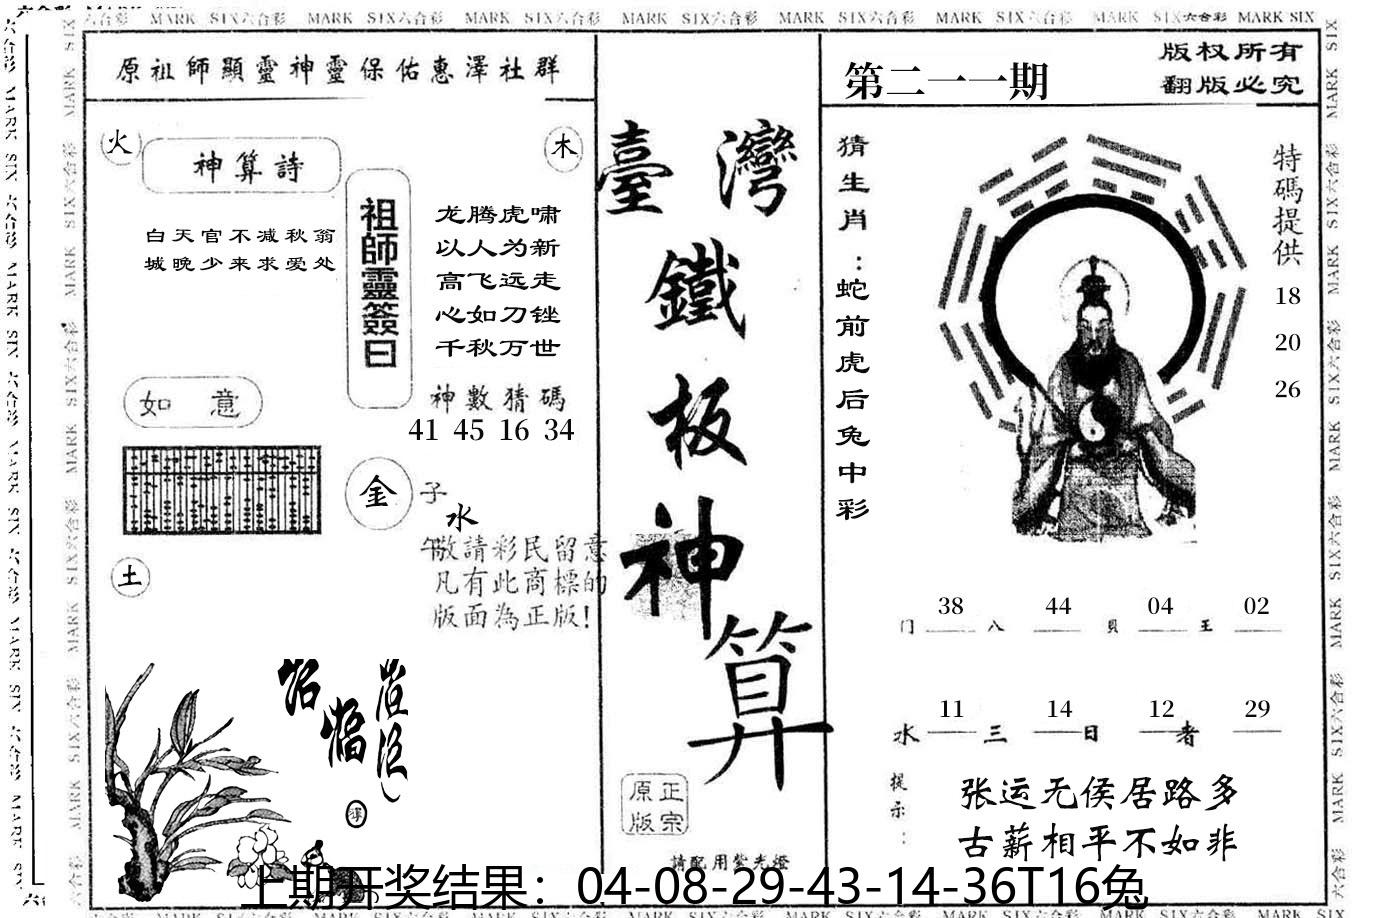 MARK SIX六合彩 MARK SIX六合彩 MARK SIX六合彩 MARK SIX六合彩 MARK SIX六合彩 MARK SIX六合彩 MARK SIX六合彩 MARK SIX
原祖師顯靈神靈保佑惠澤社群
火
神算詩
木
白天官不减秋翁
城晚少来求爱处
祖師靈簽曰
龙腾虎啸
以人为新
高飞远走
心如刀锉
千秋万世
神數猜碼
41 45 16 34
如意
金
子
水
午
土
敬請彩民留意
凡有此商標的
版面為正版!
臺灣
鐵
板
神
算
正宗
原版
請配用紫光燈
第二一一期
版权所有
翻版必究
猜生肖:蛇前虎后兔中彩
特碼提供
18
20
26
38 44 04 02
门 八 貝 王
11 14 12 29
水 三 日 者
提示:
张运无侯居路多
古薪相平不如非
上期开奖结果：04-08-29-43-14-36T16兔